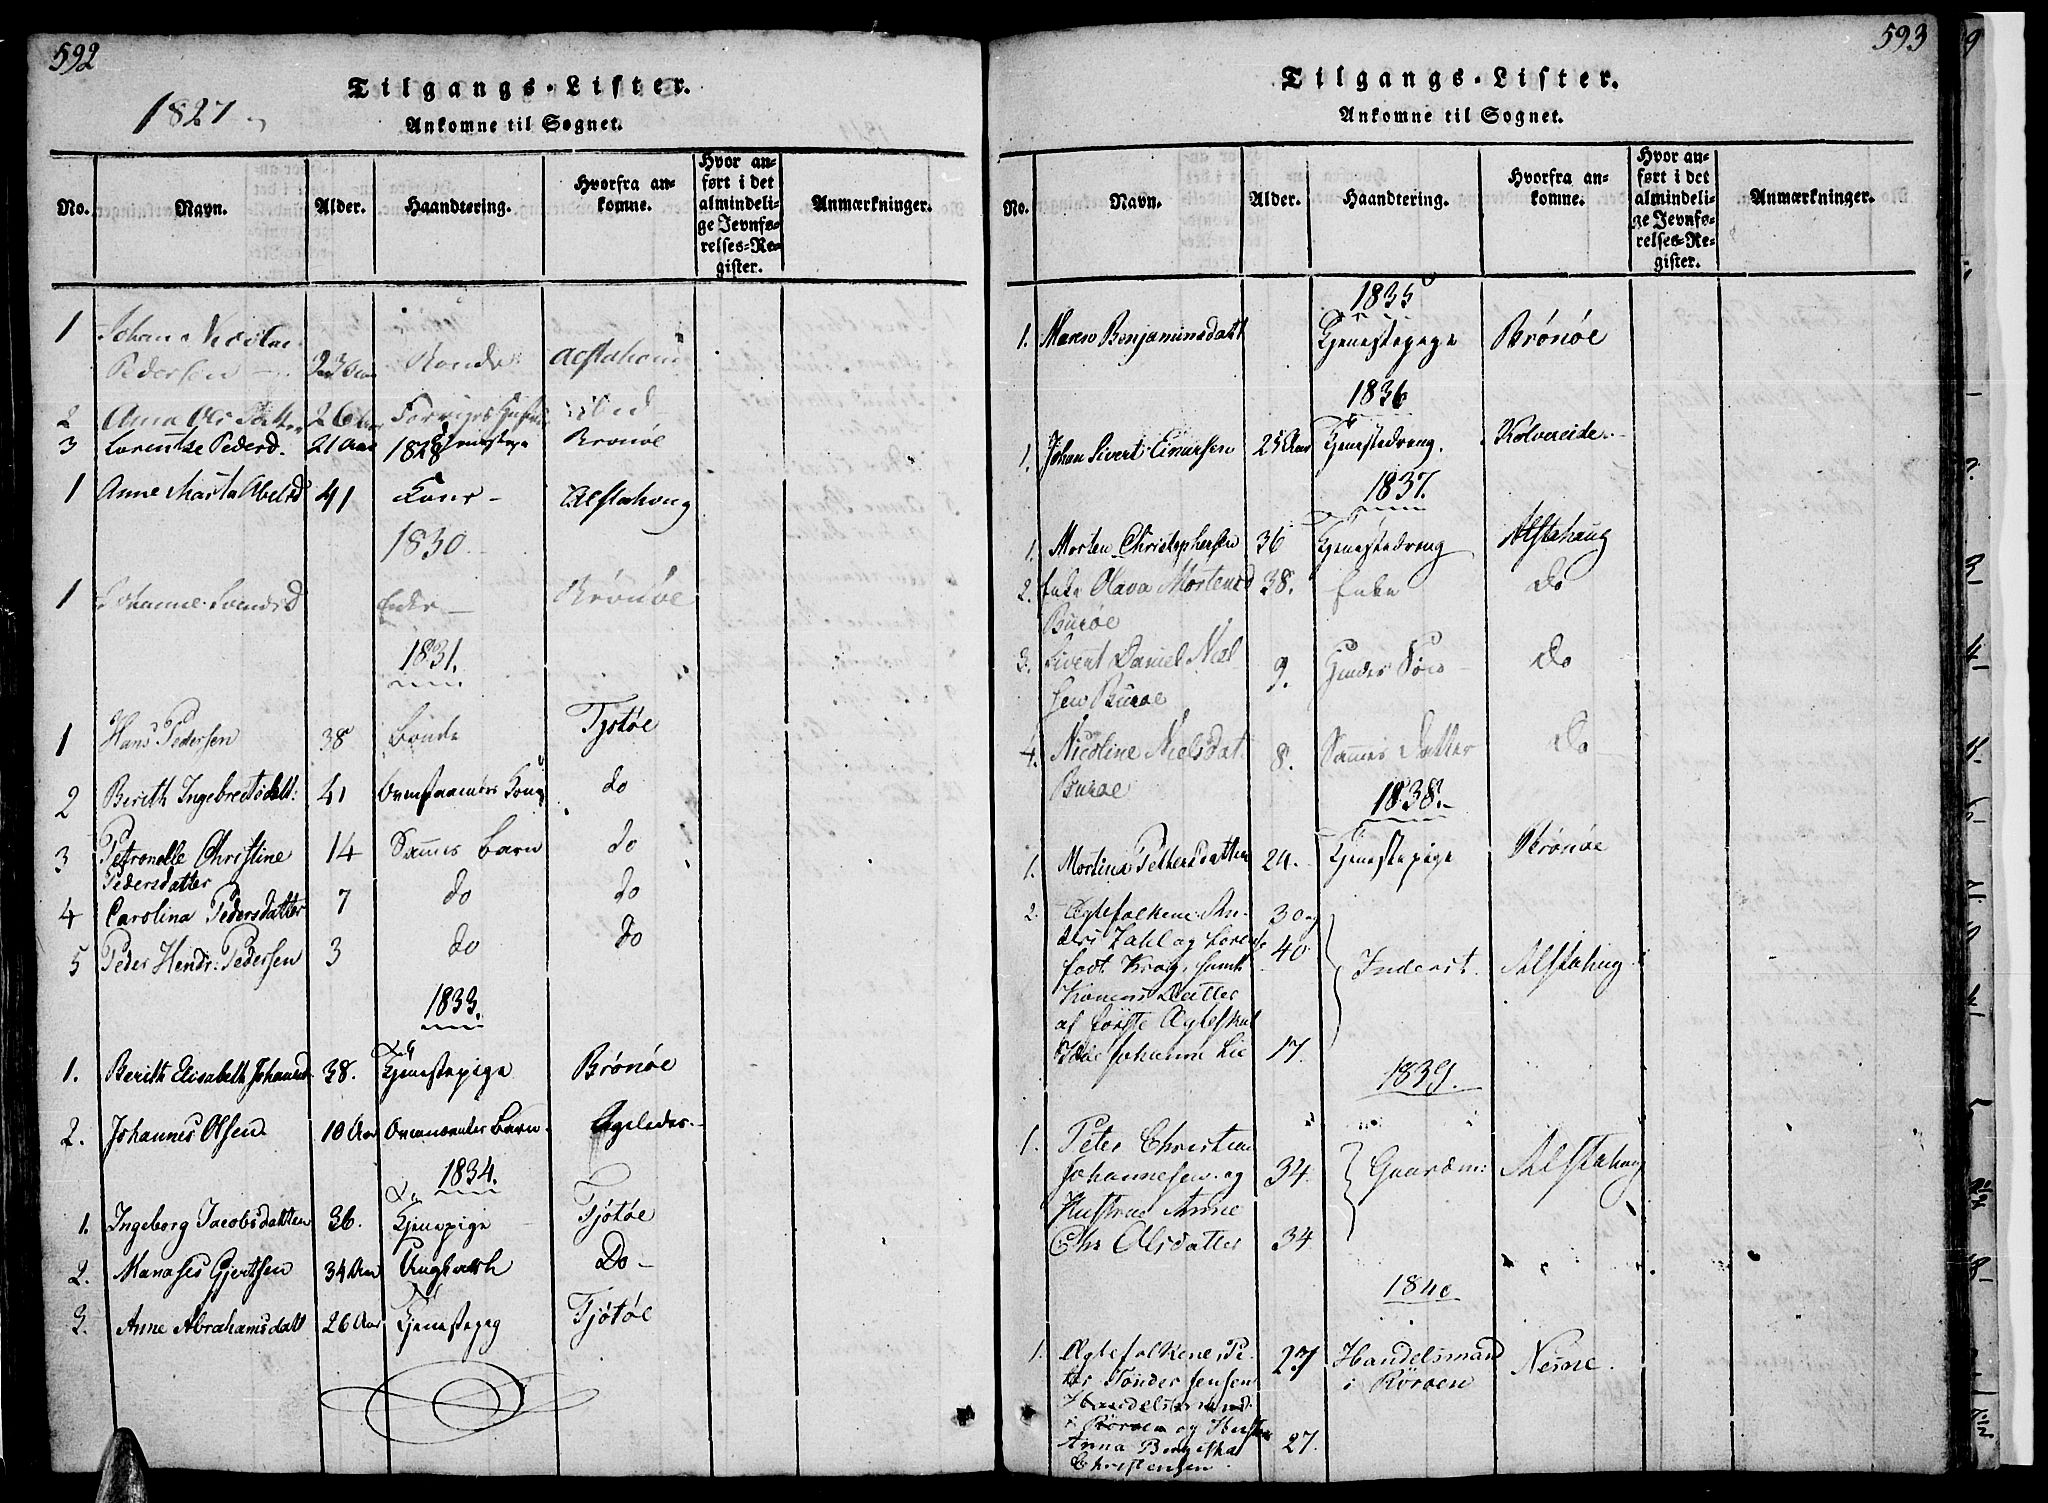 592
Tilgangs-Lister.
1827
Ankomne til Sognet.
No. Navn. Alder. Haandtering. Hvorfra ankomne. Hvor anført i det almindelige Jevnførelses-Register. Anmærkninger.
1 Johan
Pedersen 23 Aar
2 Anna 26
3 Lorentse Pedersd. 21 Aar 1828 Brönöe
1 Anne Marta Abelsd 41 Kone Alstahoug
1830
1 Johanne Svendsd Enke Brönöe
1831.
1 Hans Pedersen 38 Bonde Tjötöe
2 Berith Ingebregtsdatt: 41 Kone do
3 Petronelle Christine 14 Sammes Barn do
Pedersdatter
4 Carolina Pedersdatter 7 do do
5 Peder Hendr: Pedersen 3 do do
1833.
1. Berith Elisabeth Johansd 38. Tjenestepige Brönöe
2. Johannes Olsen 10 Aar Barn
1834.
1. Ingeborg Jacobsdatter 36. Tjenepige Tjötöe
2. Manases Gjertsen 34 Aar Ungkarl Do
3. Anne Abrahamsdatt 26 Aar Tjenestepig Tjötöe
593
Tilgangs-Lister.
Ankomne til Sognet.
No. Navn. Alder. Haandtering. Hvorfra ankomne. Hvor anført i det almindelige Jevnførelses-Register. Anmærkninger.
1835
1. Maren Benjaminsdatt Tjenestepige Brönöe
1836
1. Johan Sivert Einersen 25 Aar Tjenestedreng. Kolvereide.
1837.
1. Morten Christophersen 36 Tjenestedreng Alstahaug
2. Enke Olava Mortensd 38. Enke do
Buröe
3. Sivert Daniel Niel- 9. Hendes Sön do
sen Buröe
4. Nicoline Nielsdat. 8. Sammes Datter Do
Buröe
1838.
1. Mortina Pettersdatter 24. Tjenestepige Brönöe
2. Ægtefolkene An- 30 og
ders Zahl og Lorentse 40
födt Krog, samt Inderst. Alstahaug
Konens Datter
af förste Ægteskab
Johanna Lie 17.
1839.
1. Peter Christian
Johannesen og 34. Gaardm: Alstahaug
Hustrue Anne
Chr Olsdatter 34
1840
1. Ægtefolkene, Pe- 27 Handelsmand Nesne.
ter Tönder Jensen i Rörøen
Handelsmand
i Rörøen og Hustru
Anna Bergitha 27.
Christensen